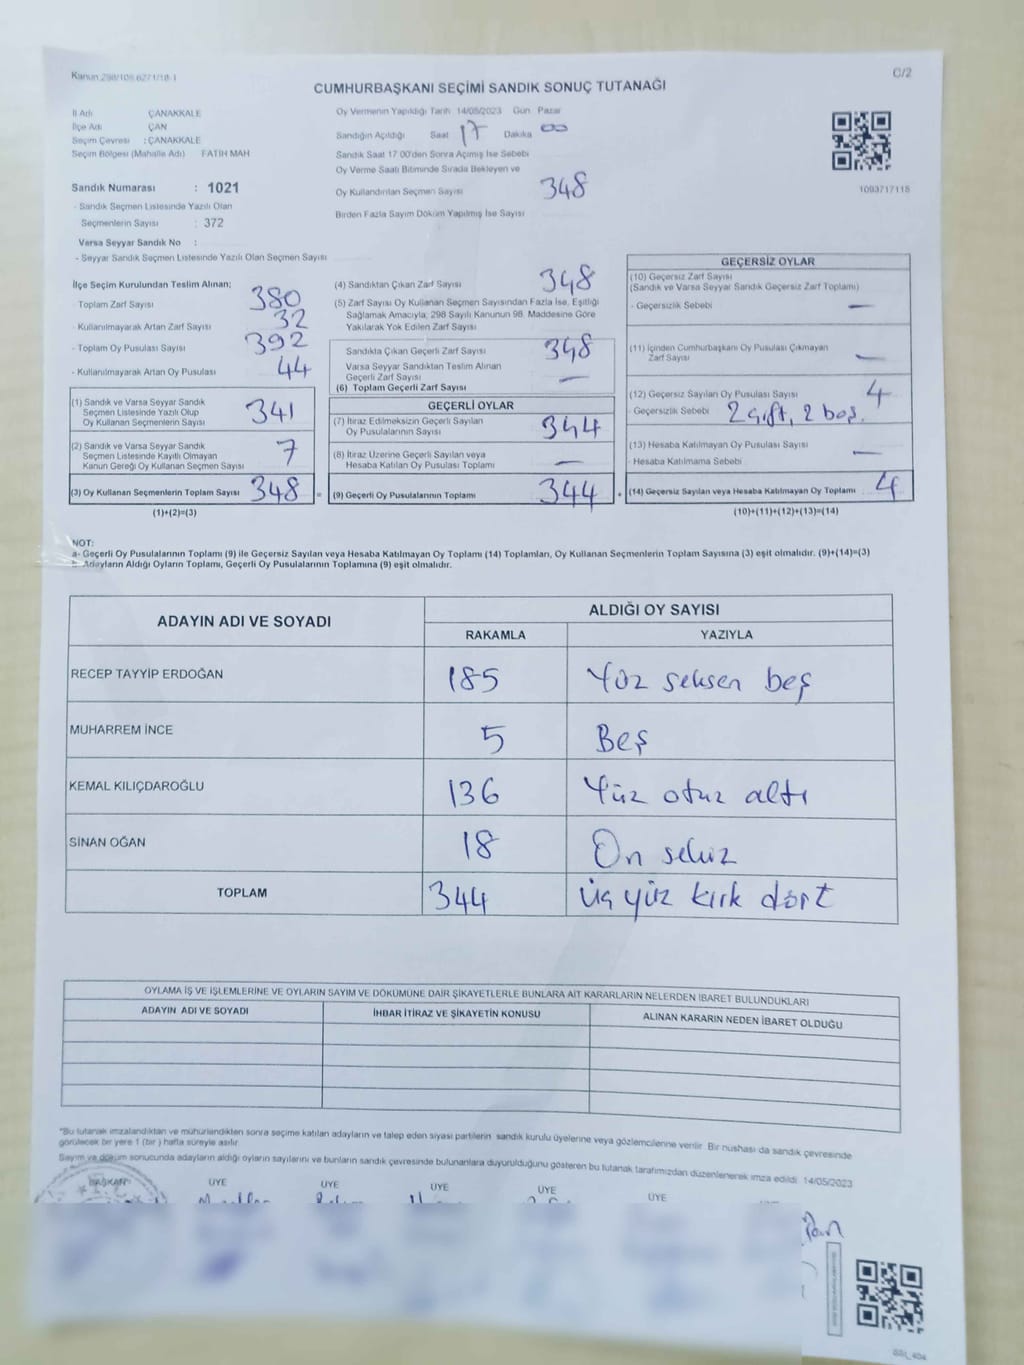 Kanun 298/105 6271/18-1
C/2
CUMHURBAŞKANI SEÇİMİ SANDIK SONUÇ TUTANAĞI
İl Adı ÇANAKKALE
İlçe Adı ÇAN
Seçim Çevresi : ÇANAKKALE
Seçim Bölgesi (Mahalle Adı) FATİH MAH
Sandık Numarası : 1021
- Sandık Seçmen Listesinde Yazılı Olan
Seçmenlerin Sayısı : 372
Varsa Seyyar Sandık No :
- Seyyar Sandık Seçmen Listesinde Yazılı Olan Seçmen Sayısı
Oy Vermenin Yapıldığı Tarih 14/05/2023 Gün Pazar
Sandığın Açıldığı Saat 17 Dakika 00
Sandık Saat 17:00'den Sonra Açımış İse Sebebi
Oy Verme Saati Bitiminde Sırada Bekleyen ve
Oy Kullandırılan Seçmen Sayısı 348
Birden Fazla Sayım Döküm Yapılmış İse Sayısı
1093717118
İlçe Seçim Kurulundan Teslim Alınan;
- Toplam Zarf Sayısı 380
- Kullanılmayarak Artan Zarf Sayısı 32
- Toplam Oy Pusulası Sayısı 392
- Kullanılmayarak Artan Oy Pusulası 44
(1) Sandık ve Varsa Seyyar Sandık
Seçmen Listesinde Yazılı Olup
Oy Kullanan Seçmenlerin Sayısı 341
(2) Sandık ve Varsa Seyyar Sandık
Seçmen Listesinde Kayıtlı Olmayan
Kanun Gereği Oy Kullanan Seçmen Sayısı 7
(3) Oy Kullanan Seçmenlerin Toplam Sayısı 348 =
(1)+(2)=(3)
(4) Sandıktan Çıkan Zarf Sayısı 348
(5) Zarf Sayısı Oy Kullanan Seçmen Sayısından Fazla İse, Eşitliği
Sağlamak Amacıyla, 298 Sayılı Kanunun 98. Maddesine Göre
Yakılarak Yok Edilen Zarf Sayısı
Sandıkta Çıkan Geçerli Zarf Sayısı 348
Varsa Seyyar Sandıktan Teslim Alınan
Geçerli Zarf Sayısı —
(6) Toplam Geçerli Zarf Sayısı
GEÇERLİ OYLAR
(7) İtiraz Edilmeksizin Geçerli Sayılan
Oy Pusulalarının Sayısı 344
(8) İtiraz Üzerine Geçerli Sayılan veya
Hesaba Katılan Oy Pusulası Toplamı —
(9) Geçerli Oy Pusulalarının Toplamı 344 +
GEÇERSİZ OYLAR
(10) Geçersiz Zarf Sayısı
(Sandık ve Varsa Seyyar Sandık Geçersiz Zarf Toplamı)
- Geçersizlik Sebebi —
(11) İçinden Cumhurbaşkanı Oy Pusulası Çıkmayan
Zarf Sayısı —
(12) Geçersiz Sayılan Oy Pusulası Sayısı 4
- Geçersizlik Sebebi 2 çift, 2 boş.
(13) Hesaba Katılmayan Oy Pusulası Sayısı —
- Hesaba Katılmama Sebebi
(14) Geçersiz Sayılan veya Hesaba Katılmayan Oy Toplamı 4
(10)+(11)+(12)+(13)=(14)
NOT:
a- Geçerli Oy Pusulalarının Toplamı (9) ile Geçersiz Sayılan veya Hesaba Katılmayan Oy Toplamı (14) Toplamları, Oy Kullanan Seçmenlerin Toplam Sayısına (3) eşit olmalıdır. (9)+(14)=(3)
Adayların Aldığı Oyların Toplamı, Geçerli Oy Pusulalarının Toplamına (9) eşit olmalıdır.
ADAYIN ADI VE SOYADI ALDIĞI OY SAYISI
RAKAMLA YAZIYLA
RECEP TAYYİP ERDOĞAN 185 Yüz seksen beş
MUHARREM İNCE 5 Beş
KEMAL KILIÇDAROĞLU 136 Yüz otuz altı
SİNAN OĞAN 18 On sekiz
TOPLAM 344 üç yüz kırk dört
OYLAMA İŞ VE İŞLEMLERİNE VE OYLARIN SAYIM VE DÖKÜMÜNE DAİR ŞİKAYETLERLE BUNLARA AİT KARARLARIN NELERDEN İBARET BULUNDUKLARI
ADAYIN ADI VE SOYADI İHBAR İTİRAZ VE ŞİKAYETİN KONUSU ALINAN KARARIN NEDEN İBARET OLDUĞU
*Bu tutanak imzalandıktan ve mühürlendikten sonra seçime katılan adayların ve talep eden siyasi partilerin sandık kurulu üyelerine veya gözlemcilerine verilir. Bir nüshası da sandık çevresinde
görülecek bir yere 1 (bir) hafta süreyle asılır.
Sayım ve döküm sonucunda adayların aldığı oyların sayılarını ve bunların sandık çevresinde bulunanlara duyurulduğunu gösteren bu tutanak tarafımızdan düzenlenerek imza edildi. 14/05/2023
BAŞKAN ÜYE ÜYE ÜYE ÜYE ÜYE